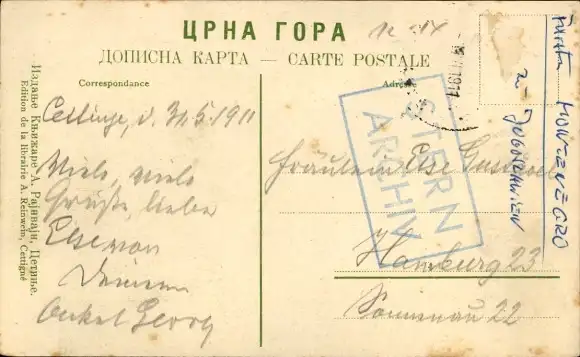 ЦРНА ГОРА
ДОПИСНА КАРТА — CARTE POSTALE
Correspondance
Adresse
Cettinje, d. 31.5.1911
Viele, viele
Grüße, liebe
Else von
Deinem
Onkel Georg
Fräulein Else
Hamburg 23
Sonnenau 22
STERN
ARCHIV
1911
MONTENEGRO
JUGOSLAWIEN
Издање Књижаре А. Рајнвајн, Цетиње.
Edition de la librairie A. Reinwein, Cettigné